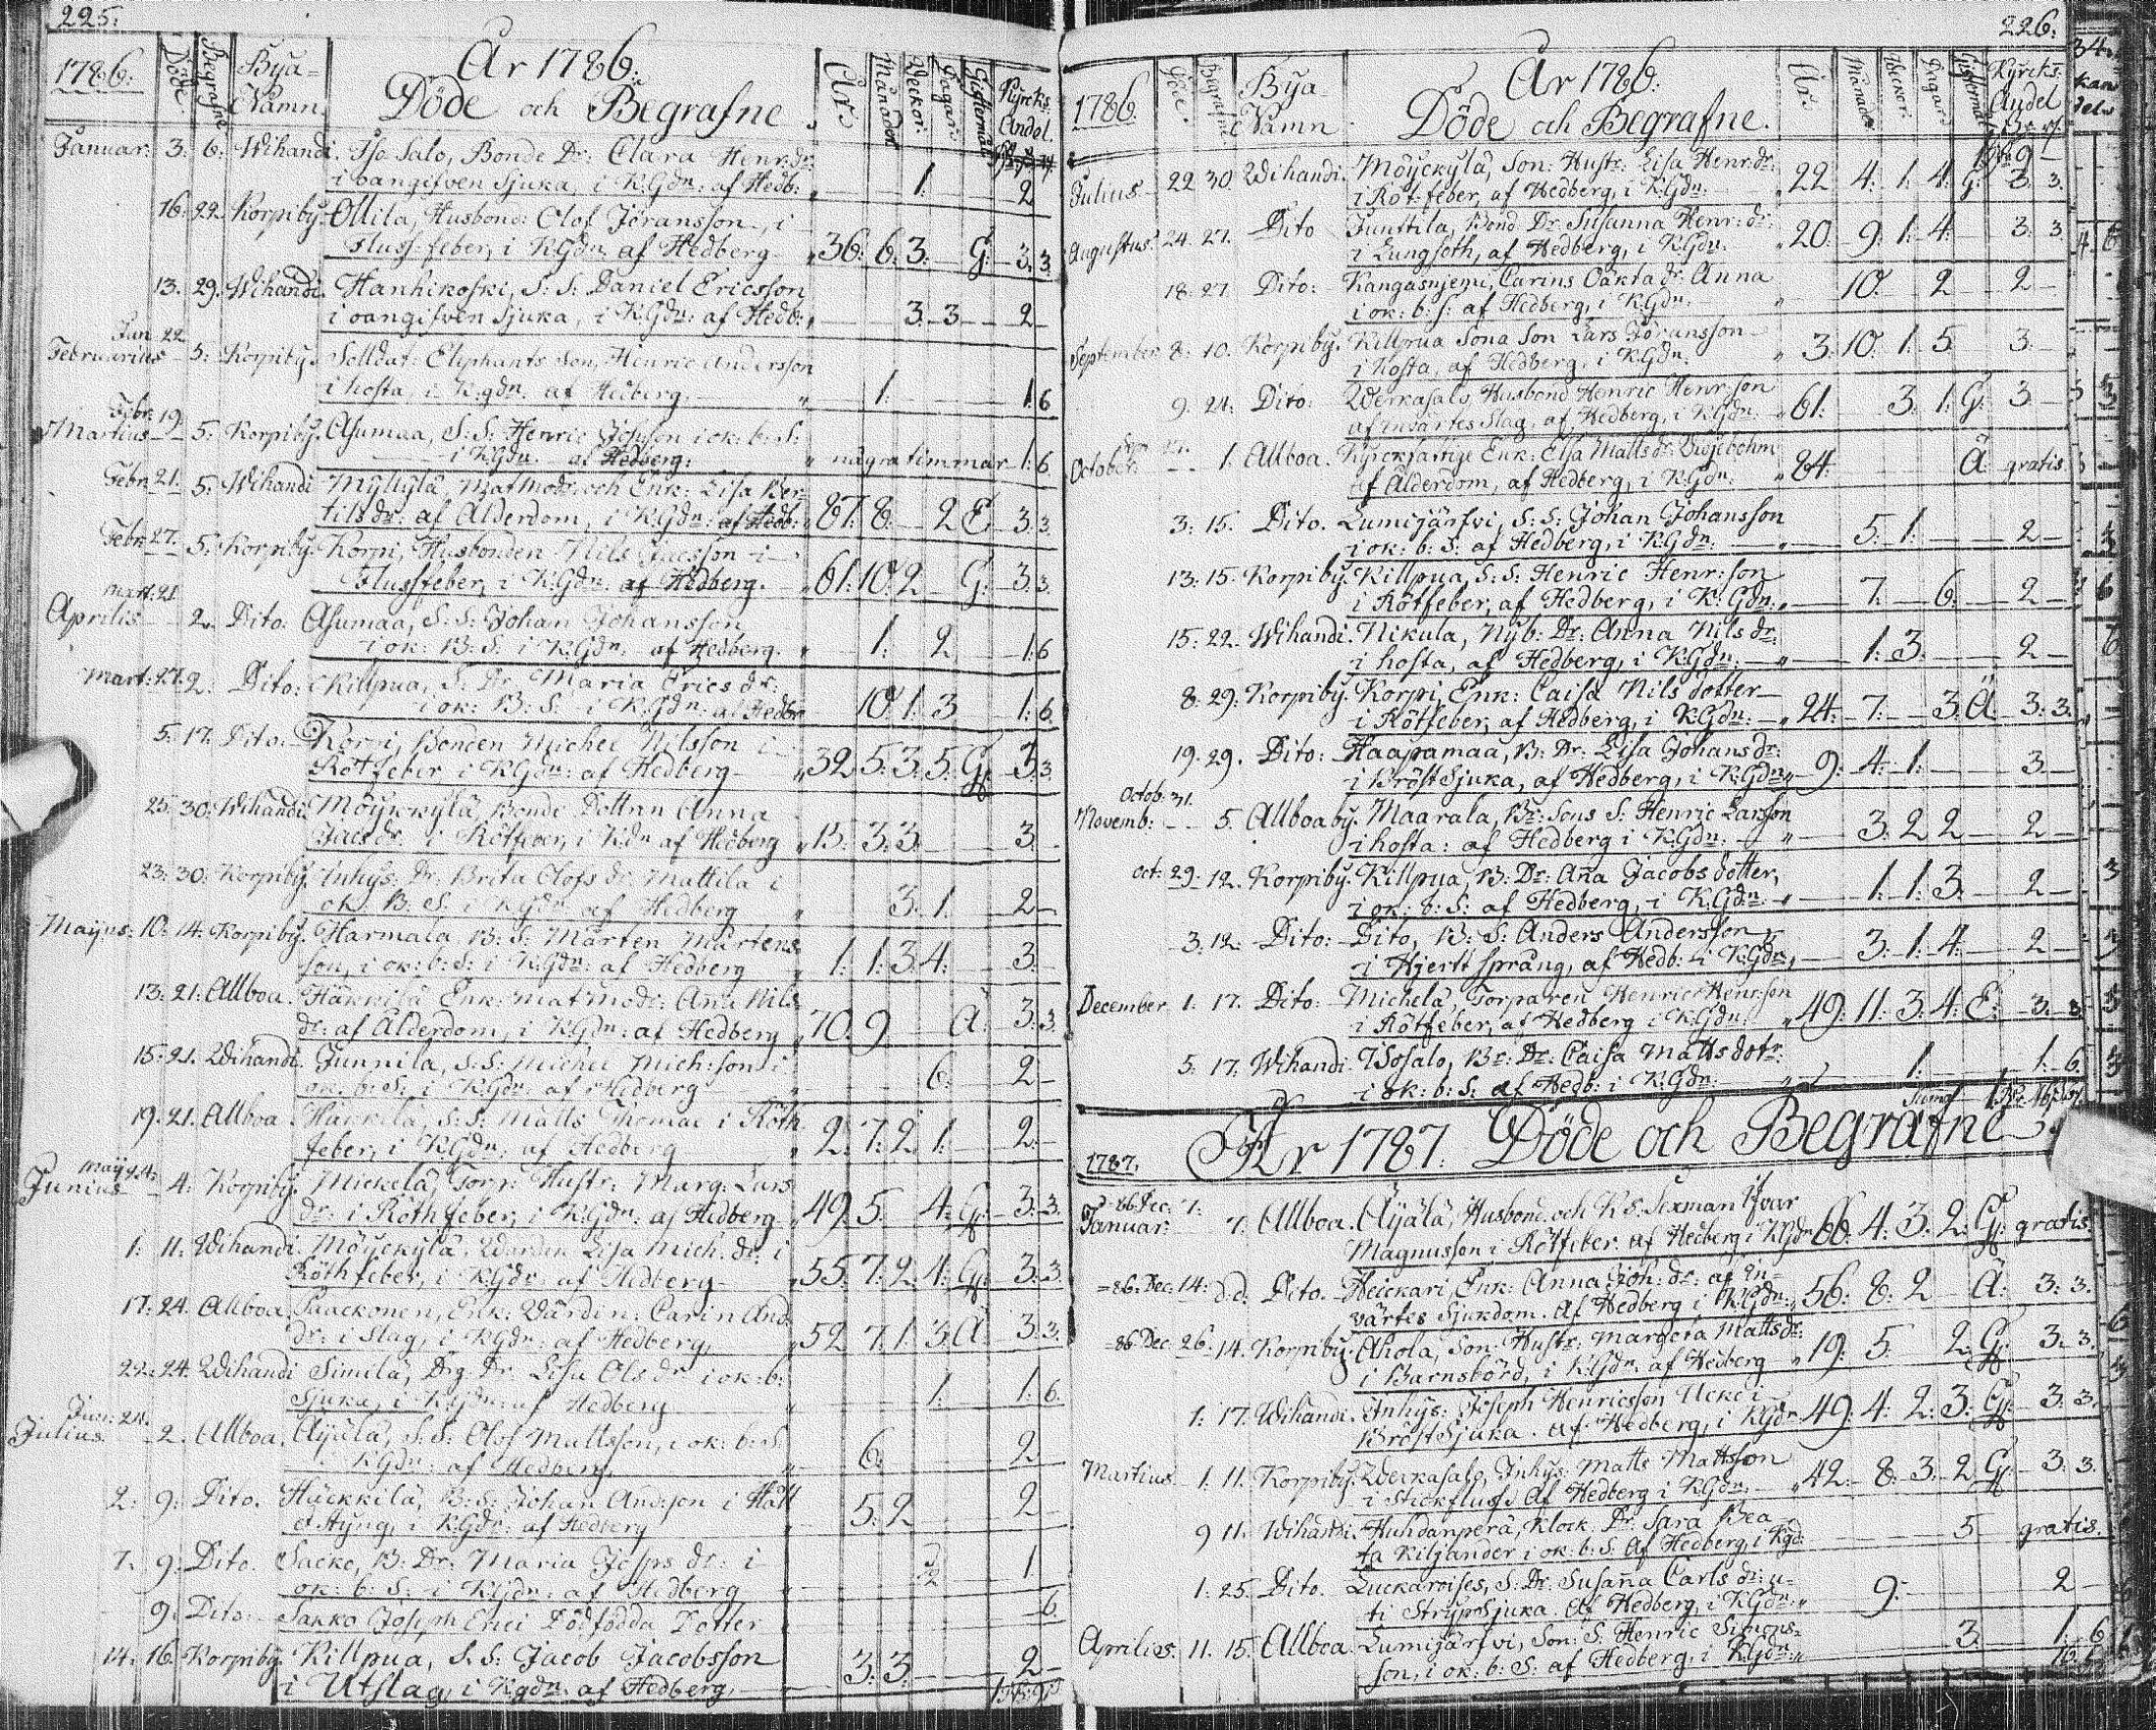 225:
1786:
Döde
Begrafne
Bya=
Namn
År 1786:
Döde och Begrafne
År:
Månader
Weckor:
Dagar:
Gifftermål:
Kyrcks
Andel
Januar: 3: 6: Wihandi. Iso Salo, Bonde Dr: Clara Henr: dr:
i oangifven Sjuka, i K:Gdn: af Hedb: 1: 2
16: 22: Korpiby. Ollila, Husbond: Olof Jöransson, i
Flussfeber, i K:Gdn: af Hedberg 36: 6: 3: G: 3: 3
13. 29. Wihandi. Hanhikoski, S: S: Daniel Ericsson
i oangifven Sjuka, i K:Gdn: af Hedb: 3: 3 2
Jan 22
Februarius 5: Korpiby. Solldat: Eliphants Son, Henric Andersson
i hosta, i K:gdn: af Hedberg, 1: 1: 6
Febr: 19
Martius 5: Korpiby. Asumaa, S: S: Henric Johsson i ok: b: S:
i K:Gdn: af Hedberg: några timmar 1: 6
Febr: 21. 5: Wihandi Mylylä, Matmodr och Enk: Lisa Ber
tils dr: af Ålderdom, i K:Gdn: af Hedb: 87: 8: 2 E 3: 3
Febr: 27. 5: Korpiby. Korpi, Husbonden Nils Jacsson i
Flussfeber, i K:Gdn: af Hedberg. 61: 10: 2 G: 3: 3
Mart: 21
Aprilis 2. Dito: Asumaa, S: S: Johan Johansson
i ok: B: S: i K:Gdn: af Hedberg. 1: 2 1: 6
Mart: 27. 2: Dito: Killpua, S: Dr Maria Erics dr:
i ok: B: S: i K:Gdn: af Hedbr 10: 1: 3 1: 6
5: 17. Dito. Korpi, Bonden Michel Nilsson i
Rötfeber i K:Gdn: af Hedberg 32 5: 3: 5: G: 3: 3
25: 30: Wihandi Möyckylä, Bonde Dottrn Anna
Jacs dr: i Rötfeber, i K:Gdn af Hedberg 15: 3: 3: 3:
23: 30: Korpiby. Inhys: Dr: Brita Olofs dr Mattila i
ok: B: S: i K:Gdn af Hedberg 3: 1: 2
Maijus: 10: 14: Korpiby. Harmala B: S: Mårten Mårtens
son, i ok: b: S: i K:Gdn: af Hedberg 1: 1: 3: 4: 3:
13: 21: Allboa. Häkkilä Enk: Matmodr: Ana Nils
dr: af Ålderdom, i K:Gdn: af Hedberg 70: 9 Ä: 3: 3
15: 21. Wihandi. Junnila, S: S: Michel Mich: son i
ok: b: S: i K:Gdn: af Hedberg 6: 2
19. 21. Allboa. Häkkilä, S: S: Matts Thomae i Röth
feber, i K:Gdn: af Hedberg 2: 7: 2: 1: 2:
Maij 24:
Junius 4: Korpiby. Mickelä, Torp: Hustr: Marg: Lars
dr: i Röthfeber, i K:Gdn: af Hedberg 49: 5: 4: G: 3: 3
1: 11: Wihandi. Möyckylä, Wärden Lisa Mich: dr: i
Röthfeber, i K:Gdn: af Hedberg 55: 7: 2: 4: G: 3: 3
17: 24. Allboa. Paackonen, Enk: Värdin: Carin And:
dr: i Slag, i K:Gdn: af Hedberg, 52 7: 1: 3: Ä: 3: 3:
22: 24. Wihandi Similä, Drg: Dr: Lisa Ols dr i ok: b:
Sjuka, i K:Gdn: af Hedberg 1: 1: 6
Jun: 24.
Julius 2. Allboa. Äyälä, S: S: Olof Mattsson, i ok: b: S:
i K:Gdn: af Hedberg, 6: 2
2: 9: Dito. Häckkilä, B: S: Johan Andsson i Håll
o Styng, i K:Gdn: af Hedberg 5: 2 2
7: 9: Dito. Sacko, B: Dr: Maria Jossps dr: i
ok: b: S: i K:Gdn: af Hedberg 1
9: Dito: Sakko Joseph Erici Dödfödda Dotter 6.
14: 16. Korpiby Killpua, S: S: Jacob Jacobsson
i Utslag, i K:gdn: af Hedberg, 3: 3: 2
226:
1786:
Döde
Begrafne
Bya=
Namn
År 1786:
Döde och Begrafne.
År:
Månader
Weckor:
Dagar:
Kyrcks:
Andel
Julius 22 30. Wihandi. Möyckylä, Son: Hustr: Lisa Henr: dr:
i Röt feber, af Hedberg, i K:Gdn: 22 4: 1: 4: G: 3: 3:
Augustus: 24. 27. Dito Junttila, Bond Dr: Susanna Henr: dr:
i Lungsoth, af Hedberg, i K:Gdn: 20: 9: 1: 4: 3: 3
18: 27 Dito: Kangasnjemi, Carins Oäkta dr: Anna
i ok: b: S: af Hedberg, i K:Gdn: 10: 2 2
September 8: 10. Korpiby. Killpua Sona Son Lars Jöransson
i hosta, af Hedberg, i K:Gdn: 3: 10: 1: 5 3.
9: 24: Dito: Werkasalo, Husbond Henric Henr: son
af invärtes Slag, af Hedberg, i K:Gdn: 61: 3: 1: G: 3
Sepr 27.
October: 1. Allboa. Kyrckfattige Enk: Elsa Matts dr
af Ålderdom, af Hedberg, i K:Gdn: 84: Ä gratis
3: 15. Dito. Lumijärfvi, S: S: Johan Johansson
i ok: b: S: af Hedberg, i K:Gdn: 5: 1: 2
13: 15. Korpiby. Killpua, S: S: Henric Henr: son
i Rötfeber, af Hedberg, i K:Gdn: 7: 6: 2
15: 22. Wihandi. Nikula, Nyb: Dr: Anna Nils dr:
i hosta, af Hedberg, i K:Gdn: 1: 3: 2
8: 29: Korpiby. Korpi, Enk: Caisa Nils dotter
i Rötfeber, af Hedberg, i K:Gdn: 24: 7: 3: Ä 3: 3:
19. 29. Dito: Haapamaa, B: Dr: Lisa Johans dr:
i BröstSjuka, af Hedberg, i K:Gdn: 9: 4: 1: 3
Octob: 31.
Novemb: 5. Allboaby. Maarala, Br: Sons S: Henric Larsson
i hosta: af Hedberg i K:Gdn: 3: 2 2 2
Oct: 29: 12. Korpiby. Killpua, B: Dr: Ana Jacobs dotter,
i ok: b: S: af Hedberg, i K:Gdn: 1: 1: 3 2
3: 12: Dito: Dito, B: S: Anders Andersson,
i Hjertt språng, af Hedb: i K:Gdn: 3: 1: 4: 2
December 1: 17. Dito: Michelä, Torparen Henric Henr: son
i Rötfeber, af Hedberg i K:Gdn: 49: 11: 3: 4: E: 3: 3
5: 17. Wihandi. Isosalo, Br: Dr: Caisa Matts dotr:
i ok: b: S: af Hedb: i K:Gdn: 1: 1: 6:
1787.
År 1787. Döde och Begrafne
86 Dec: 7:
Januar: 7. Allboa. Äyälä, Husbond och K: S: Sexman Ifvar
Magnusson i Rötfeber. af Hedberg i K:Gdn 4: 3: 2: G: gratis
86. Dec: 14: d.d: Dito. Heickari, Enk: Anna Joh: dr: af In=
värtes Sjukdom. af Hedberg i K:Gdn: 56: 8: 2 Ä: 3: 3.
86 Dec 26: 14. Korpiby. Ahola, Son: Hustr: Margeta Matts dr:
i Barnsbörd, i K:Gdn: af Hedberg 19: 5: 2: G: 3: 3.
1: 17. Wihandi. Inhys: Joseph Henricsson Ucko i
BröstSjuka. af Hedberg, i K:Gdn 49: 4: 2: 3: G: 3: 3.
Martius 1: 11. Korpiby. Werkasalo, Inhys: Matts Mattsson
i Stickfluss. Af Hedberg i K:Gdn: 42: 8: 3: 2 G: 3: 3.
9 11. Wihandi. Huhdanperä, Klock: Dr: Sara Bea
ta Kiljander i ok: b: S: Af Hedberg, i Kgd: 5 gratis.
1: 25. Dito. Luckaroises, S: Dr: Susana Carls dr: u=
ti StrypSjuka. Af Hedberg, i K:Gdn: 9: 2
Aprilies: 11. 15. Allboa. Lumijärfvi, Son: S: Henric Simons=
son, i ok: b: S: af Hedberg, i K:Gdn: 3. 1: 6